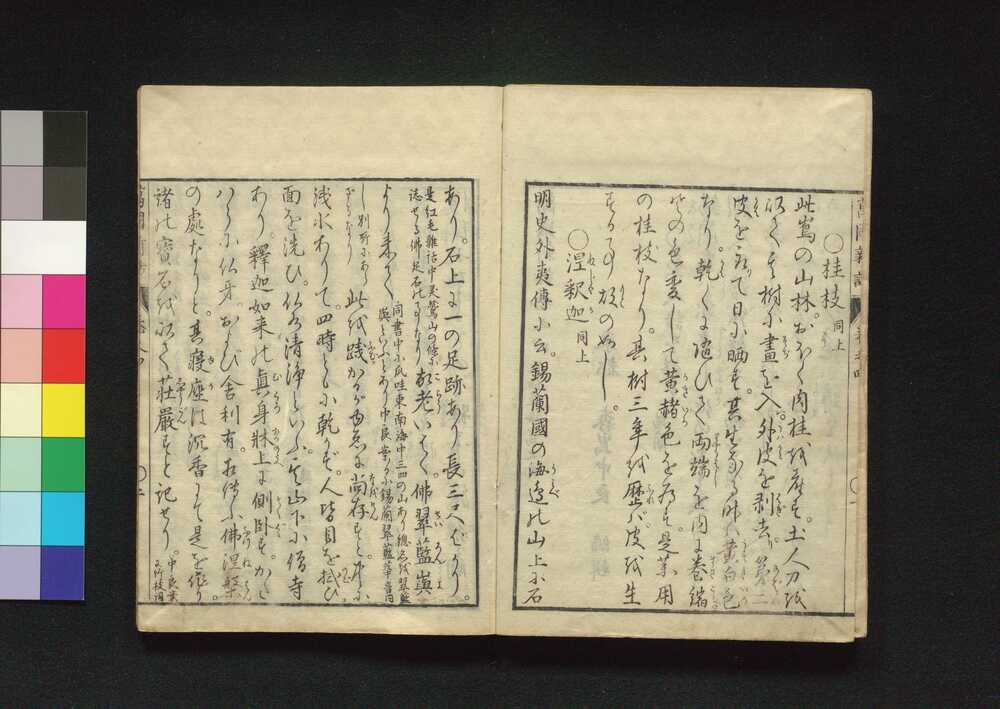 ○桂枝 同上
此嶌の山林。おほく肉桂を産す。土人刀を
以て其樹に畫を入。外皮を剥去り。第二
皮を取て日に晒す。其生なる時は黄白色
なり。乾くに随ひて両端を内に巻縮
其色変して黄赭色を為す。是薬用
の桂枝なり。其樹三年を歴ば皮を生
する事故のゆし。
○涅釈迦 同上
明史外夷傳に云。錫蘭國の海邊の山上に石
あり。石上に一の足跡あり。長三尺ばかり。
是紅毛雜話中霊鷲山の條に
誌せる佛足石の事なり
故老いはく。佛翠藍嶼
より来りて
同書中に爪哇東南海中三四の山あり總名を翠藍
嶼といふとあり中良案るに錫蘭翠藍華音同
し別所にあらざるなり
此を践かるがゆゑに尚存すと。中に
浅水ありて。四時ともに乾かず。人皆目を拭ひ
面を洗ひ。仏水清浄といふ。其山下に僧寺
あり。釋迦如来の真身牀上に側卧す。かたはらに仏牙。および舎利有。相傳ふ佛涅槃
の處なりと。其寝座は沉香にて是を作り。
諸の寶石を以て。荘厳すと記せり。中良案